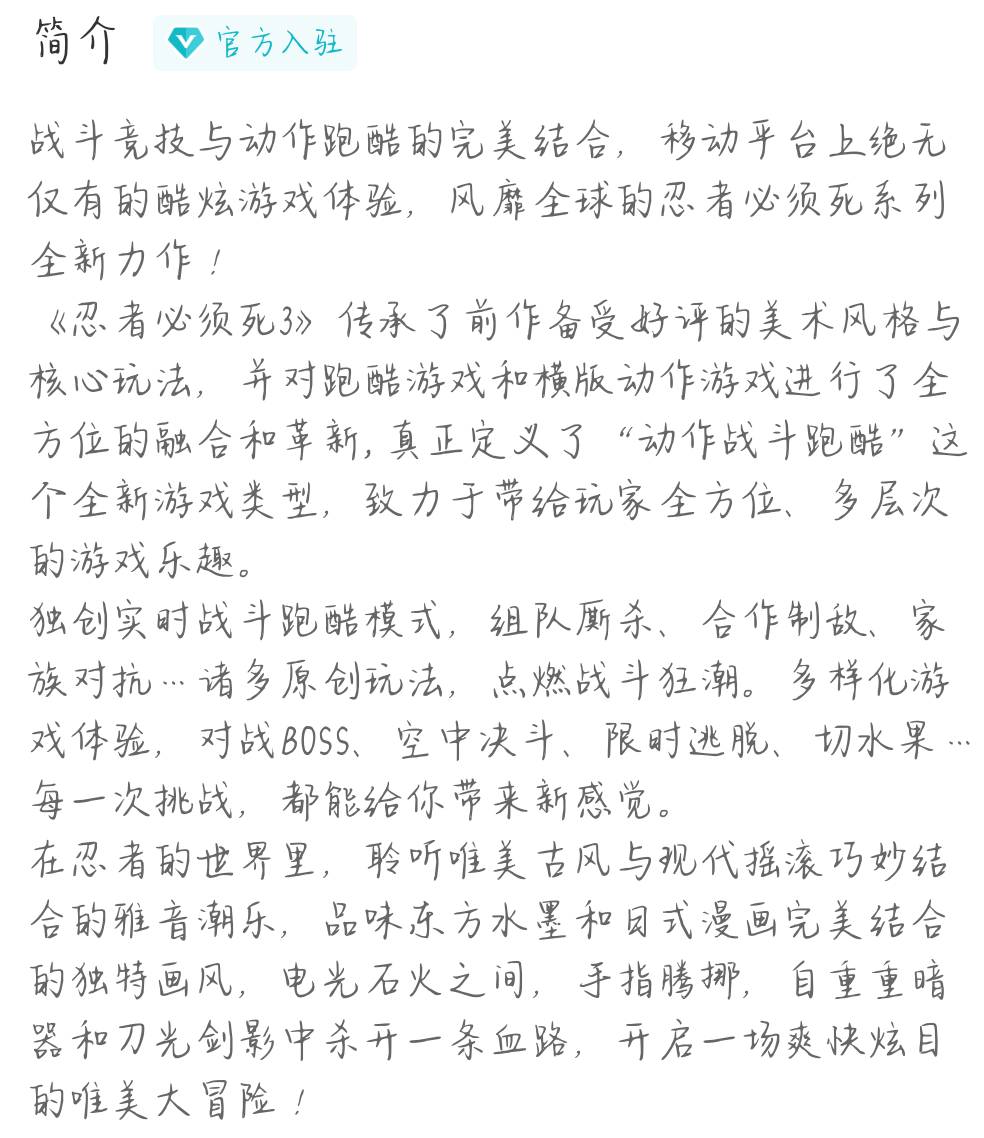 简介 官方入驻
战斗竞技与动作跑酷的完美结合，移动平台上绝无
仅有的酷炫游戏体验，风靡全球的忍者必须死系列
全新力作！
《忍者必须死3》传承了前作备受好评的美术风格与
核心玩法，并对跑酷游戏和横版动作游戏进行了全
方位的融合和革新,真正定义了“动作战斗跑酷”这
个全新游戏类型，致力于带给玩家全方位、多层次
的游戏乐趣。
独创实时战斗跑酷模式，组队厮杀、合作制敌、家
族对抗…诸多原创玩法，点燃战斗狂潮。多样化游
戏体验，对战BOSS、空中决斗、限时逃脱、切水果…
每一次挑战，都能给你带来新感觉。
在忍者的世界里，聆听唯美古风与现代摇滚巧妙结
合的雅音潮乐，品味东方水墨和日式漫画完美结合
的独特画风，电光石火之间，手指腾挪，自重重暗
器和刀光剑影中杀开一条血路，开启一场爽快炫目
的唯美大冒险！